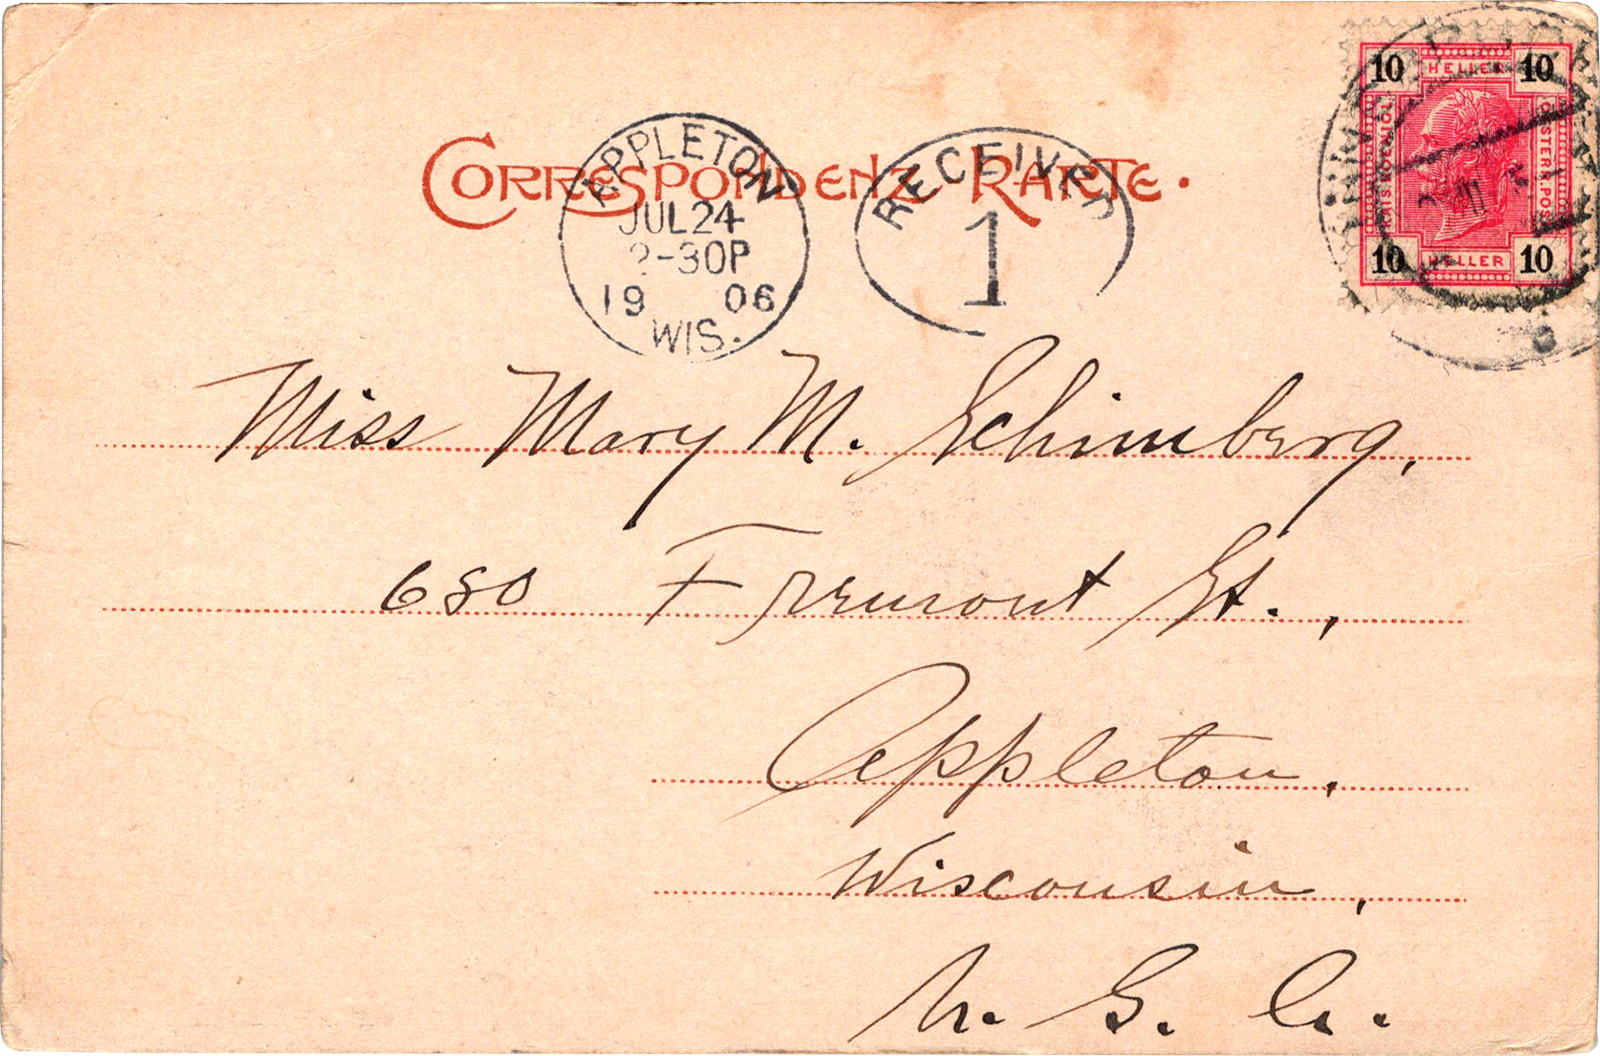 CORRESPONDENZ-KARTE.
APPLETON
JUL 24
2-30P
19 06
WIS.
RECEIVED
1
10 HELLER 10
KAIS. KÖNIGL.
ÖSTERR. POST
10 HELLER 10
Miss Mary M. Schimberg,
680 Fremont St.,
Appleton,
Wisconsin,
U. S. A.